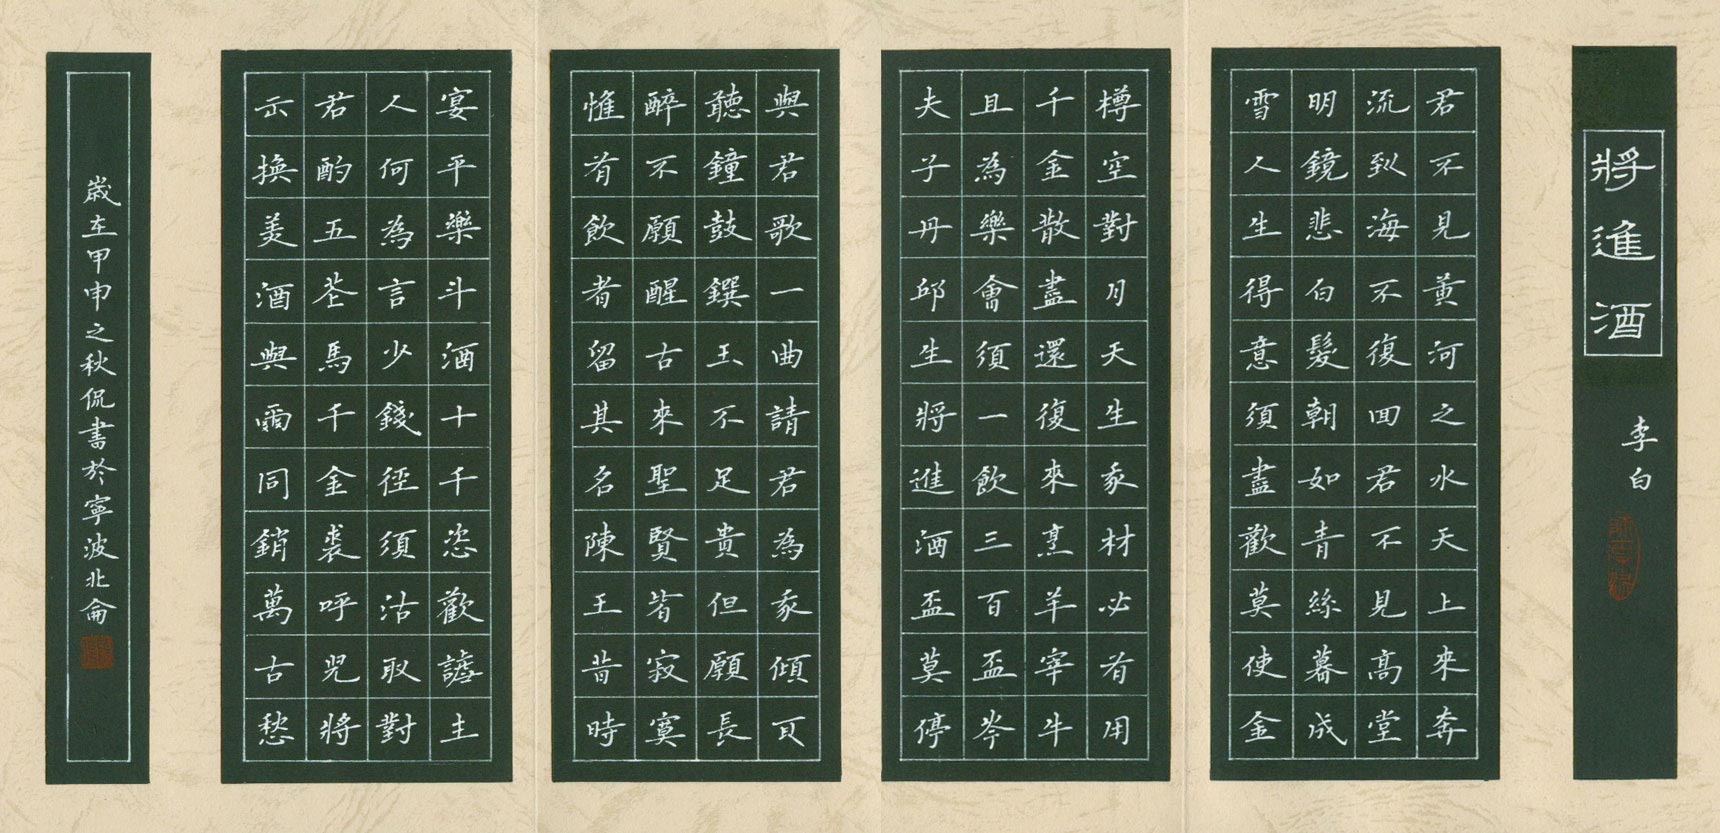 將進酒
李白
君不見黃河之水天上來奔
流到海不復回君不見高堂
明鏡悲白髮朝如青絲暮成
雪人生得意須盡歡莫使金
樽空對月天生我材必有用
千金散盡還復來烹羊宰牛
且為樂會須一飲三百盃岑
夫子丹邱生將進酒盃莫停
與君歌一曲請君為我傾耳
聽鐘鼓饌玉不足貴但願長
醉不願醒古來聖賢皆寂寞
惟有飲者留其名陳王昔時
宴平樂斗酒十千恣歡謔主
人何為言少錢徑須沽取對
君酌五花馬千金裘呼兒將
出換美酒與爾同銷萬古愁
歲在甲申之秋侃書於寧波北侖